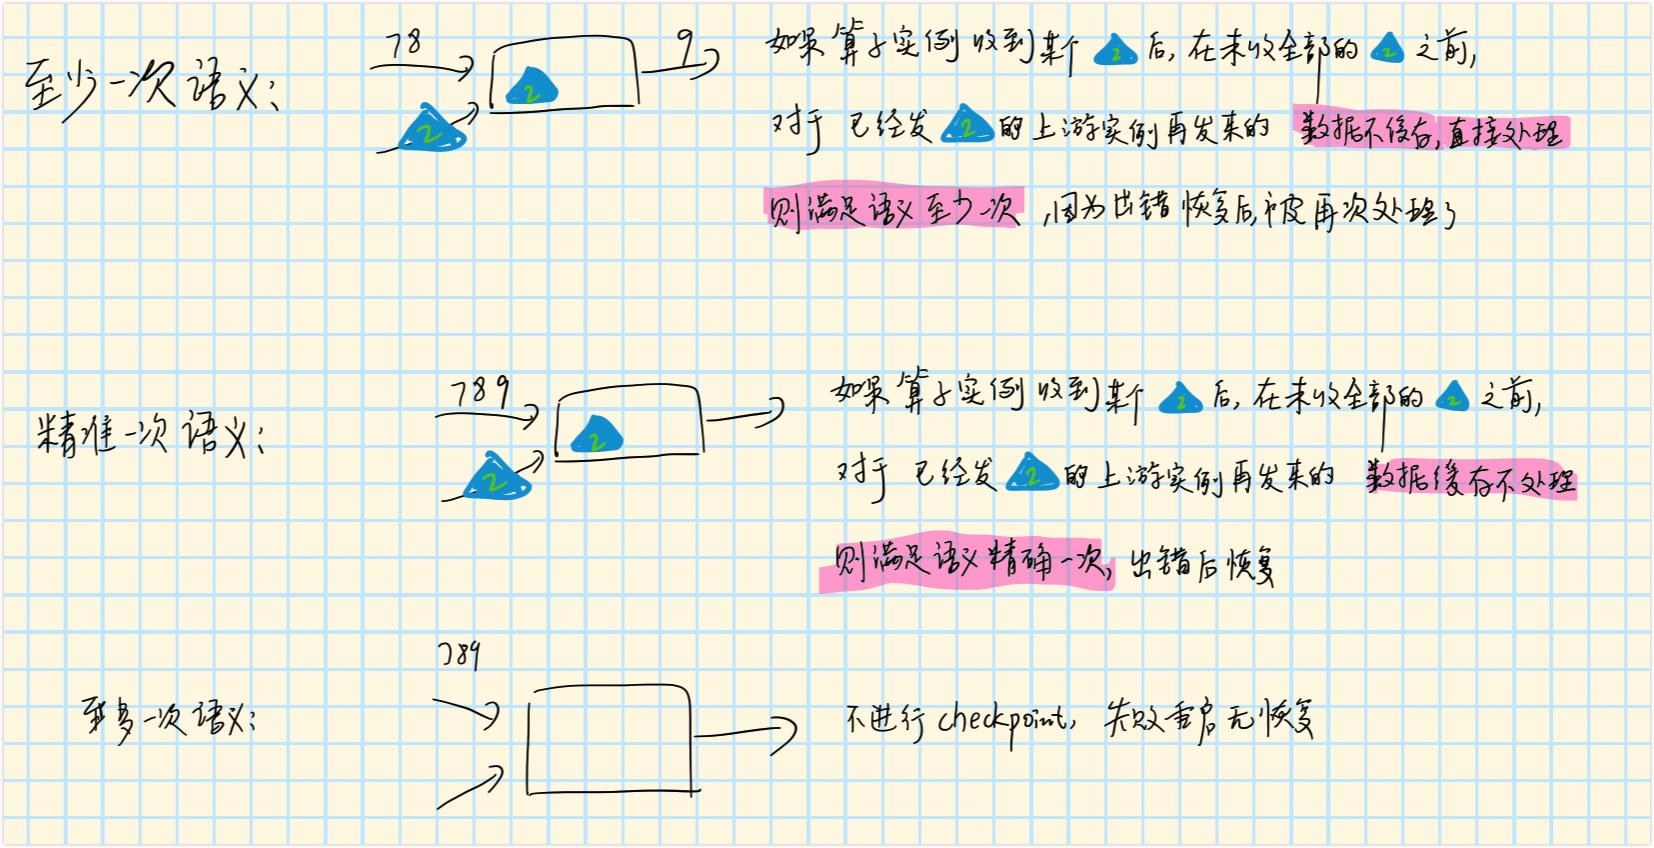 至少一次语义:
78
9
2
2
如果算子实例收到某个 2 后, 在未收全部的 2 之前,
对于 已经发 2 的上游实例再发来的 数据不缓存, 直接处理
则满足语义至少一次, 因为出错恢复后, 被再次处理了
精准一次语义:
789
2
2
如果算子实例收到某个 2 后, 在未收全部的 2 之前,
对于 已经发 2 的上游实例再发来的 数据缓存不处理
则满足语义精确一次, 出错后恢复
至多一次语义:
789
不进行checkpoint, 失败重启无恢复